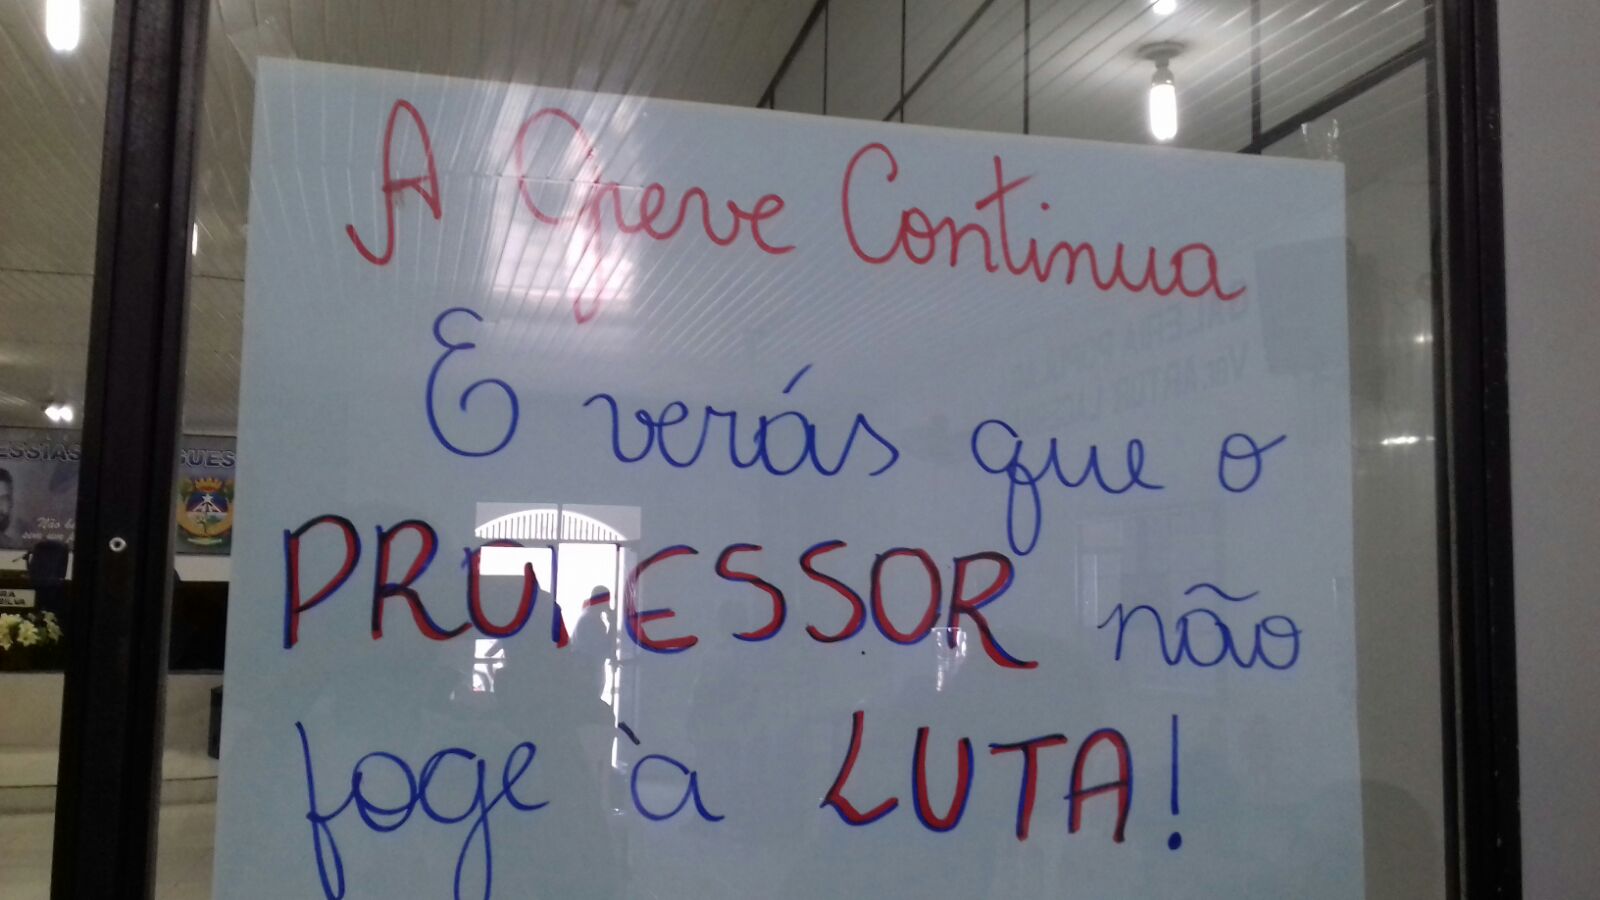 A Greve Continua
E verás que o
PROFESSOR não
foge à LUTA!
ESSIAS
GUES
Não